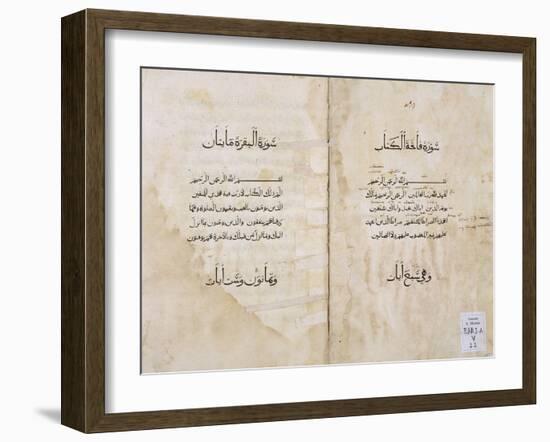 سورة فاتحة الكتاب
بسم الله الرحمن الرحيم
الحمد لله رب العالمين الرحمن الرحيم ملك
يوم الدين اياك نعبد واياك نستعين
اهدنا الصراط المستقيم صراط الذين انعمت
عليهم غير المغضوب عليهم ولا الضالين
وهي سبع آيات
سورة البقرة مايتان
بسم الله الرحمن الرحيم
الم ذلك الكتاب لا ريب فيه هدى للمتقين
الذين يومنون بالغيب ويقيمون الصلوة ومما
رزقناهم ينفقون والذين يومنون بما انزل
اليك وما انزل من قبلك وبالاخرة هم يوقنون
وثمانون وست آيات